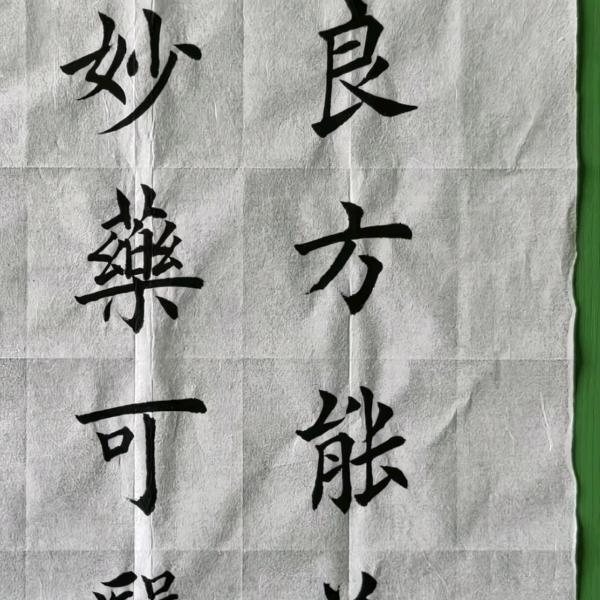 良方能
妙藥可